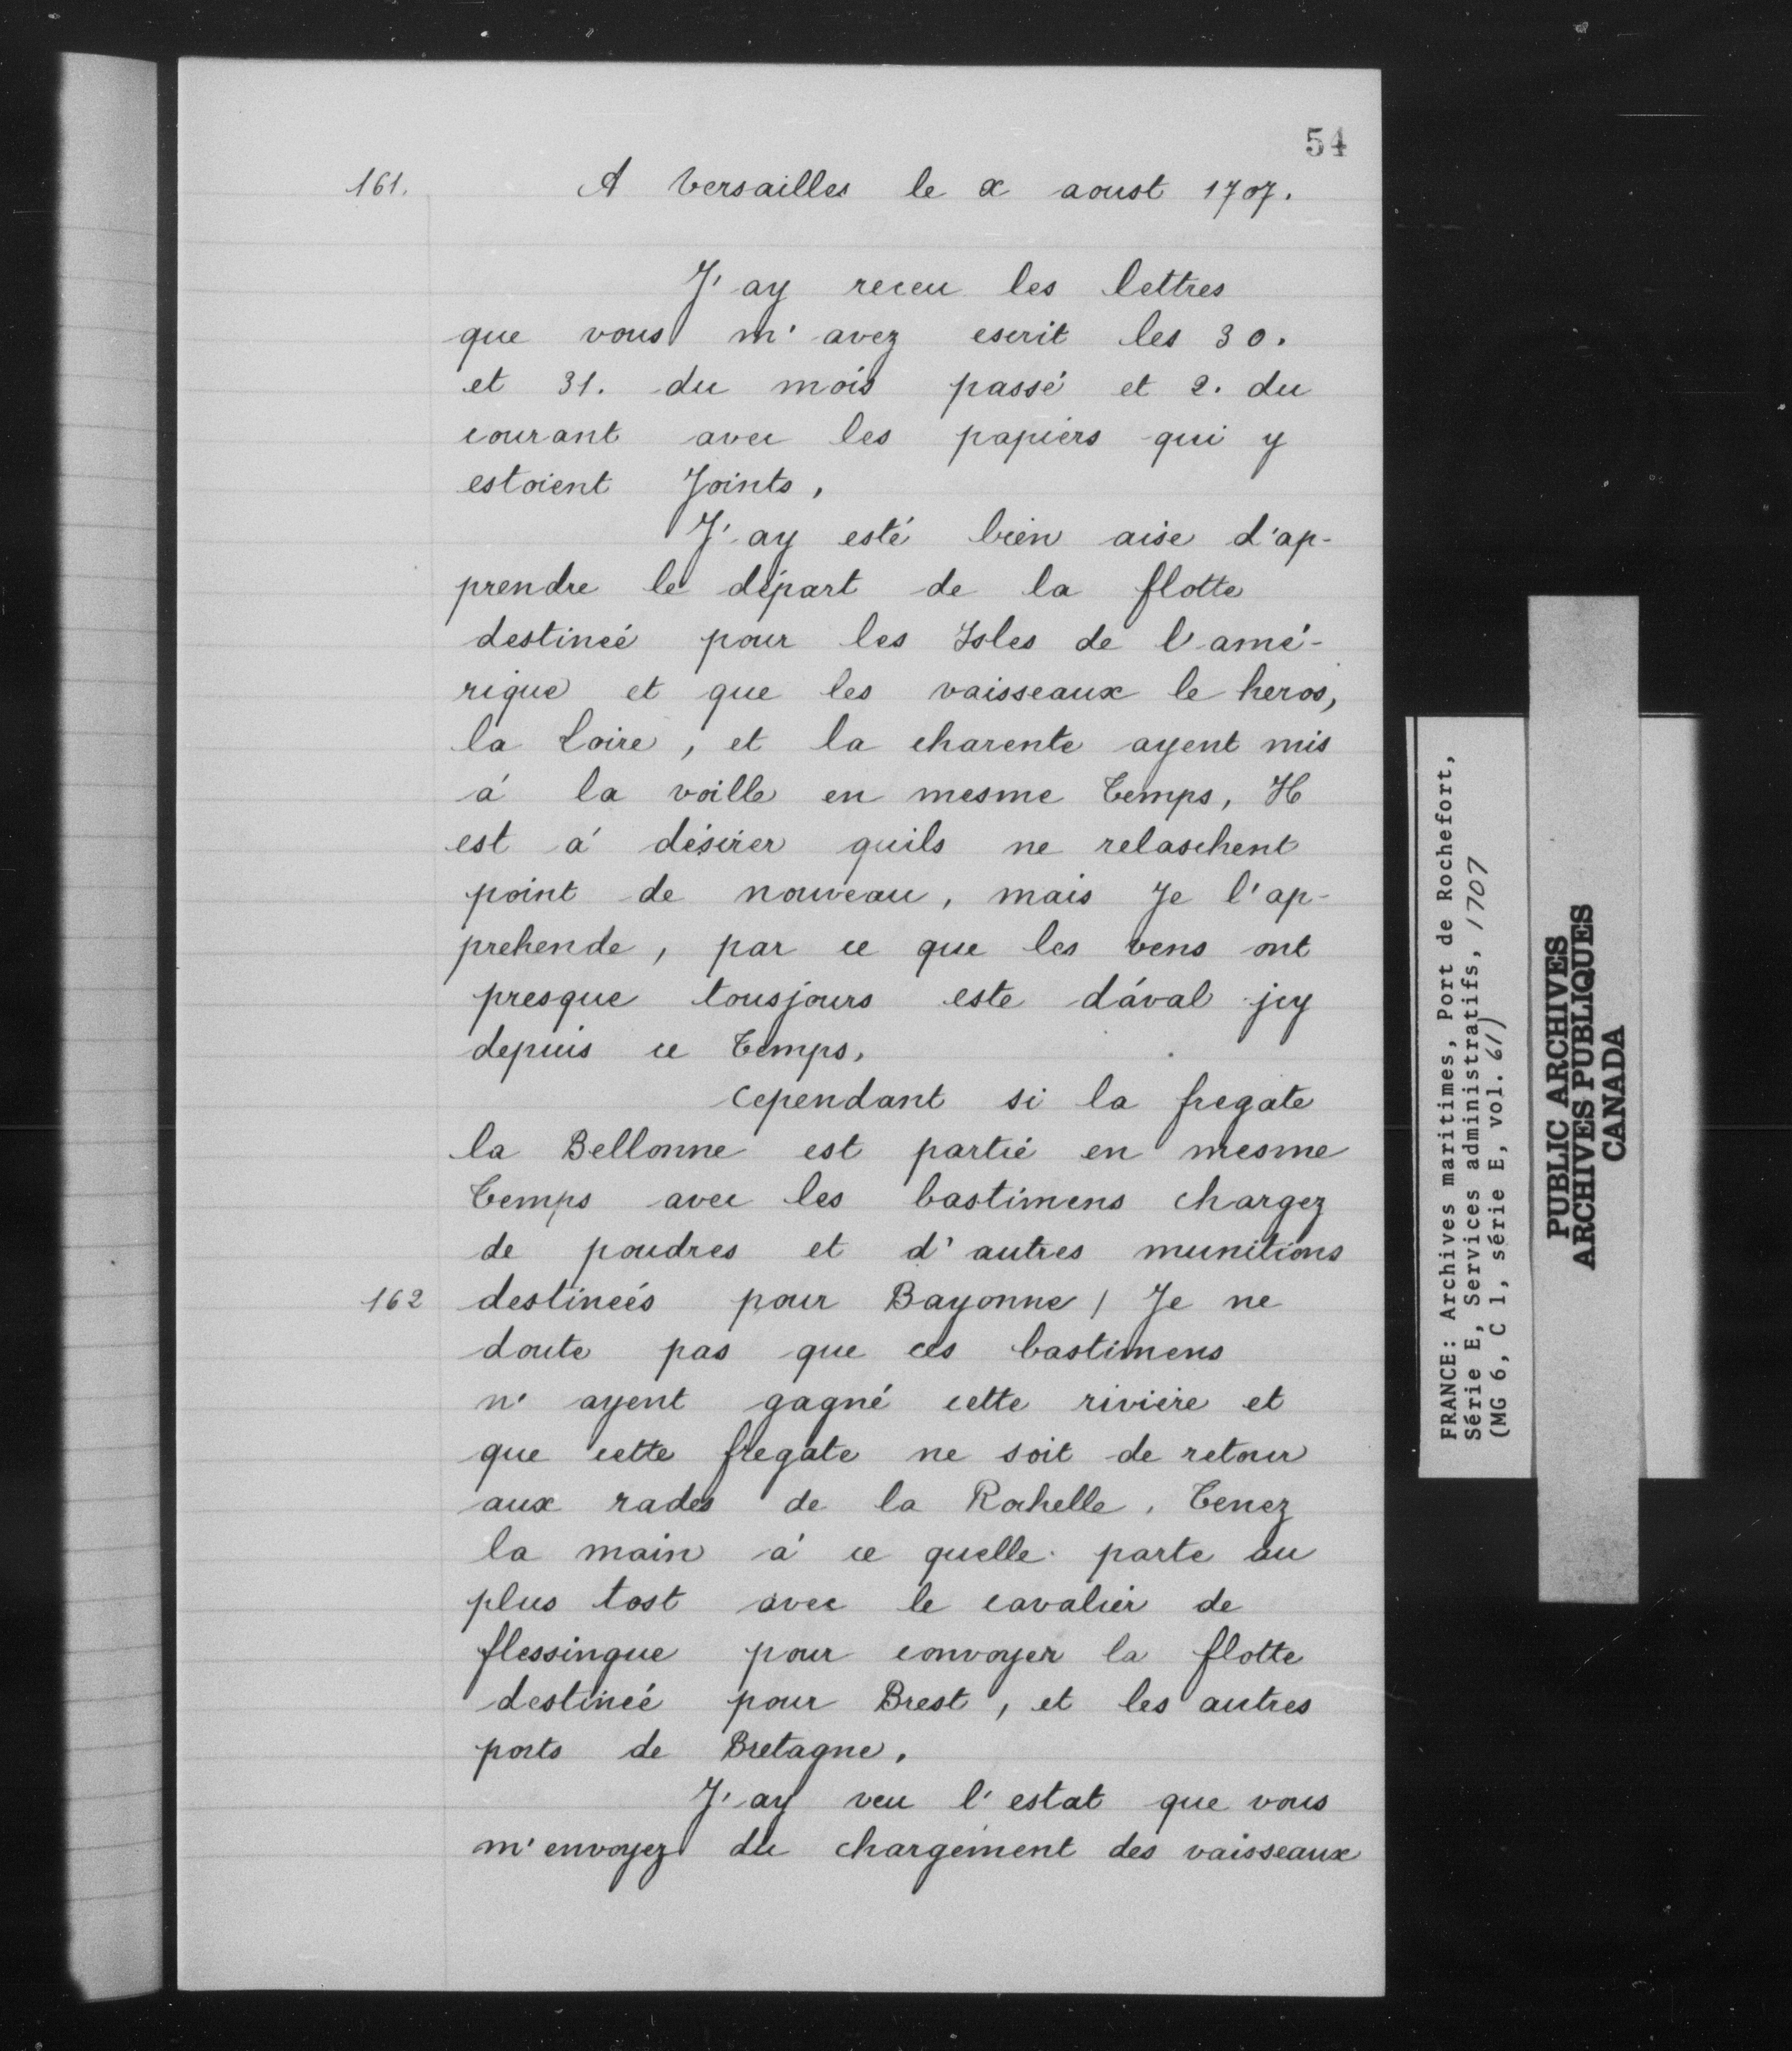 54
161. A Versailles le x aoust 1707.
J'ay receu les lettres
que vous m'avez escrit les 30.
et 31. du mois passé et 2. du
courant avec les papiers qui y
estoient Joints,
J'ay esté bien aise d'ap-
prendre le départ de la flotte
destineé pour les Isles de l'amé-
rique et que les vaisseaux le heros,
la Loire, et la charente ayent mis
á la voille en mesme Temps, Il
est á désirer quils ne relaschent
point de nouveau, mais Je l'ap-
prehende, par ce que les vens ont
presque tousjours este d'aval jcy
depuis ce Temps.
Cependant si la fregate
la Bellonne est partié en mesme
Temps avec les bastimens chargez
de poudres et d'autres munitions
162 destineés pour Bayonne / Je ne
doute pas que ces bastimens
n'ayent gagné cette riviere et
que cette fregate ne soit de retour
aux rades de la Rochelle. Tenez
la main á ce quelle parte au
plus tost avec le cavalier de
flessingue pour convoyer la flotte
destineé pour Brest, et les autres
ports de Bretagne.
J'ay veu l'estat que vous
m'envoyez du chargement des vaisseaux
FRANCE: Archives maritimes, Port de Rochefort,
Série E, Services administratifs, 1707
(MG 6, C 1, série E, vol. 611)
PUBLIC ARCHIVES
ARCHIVES PUBLIQUES
CANADA